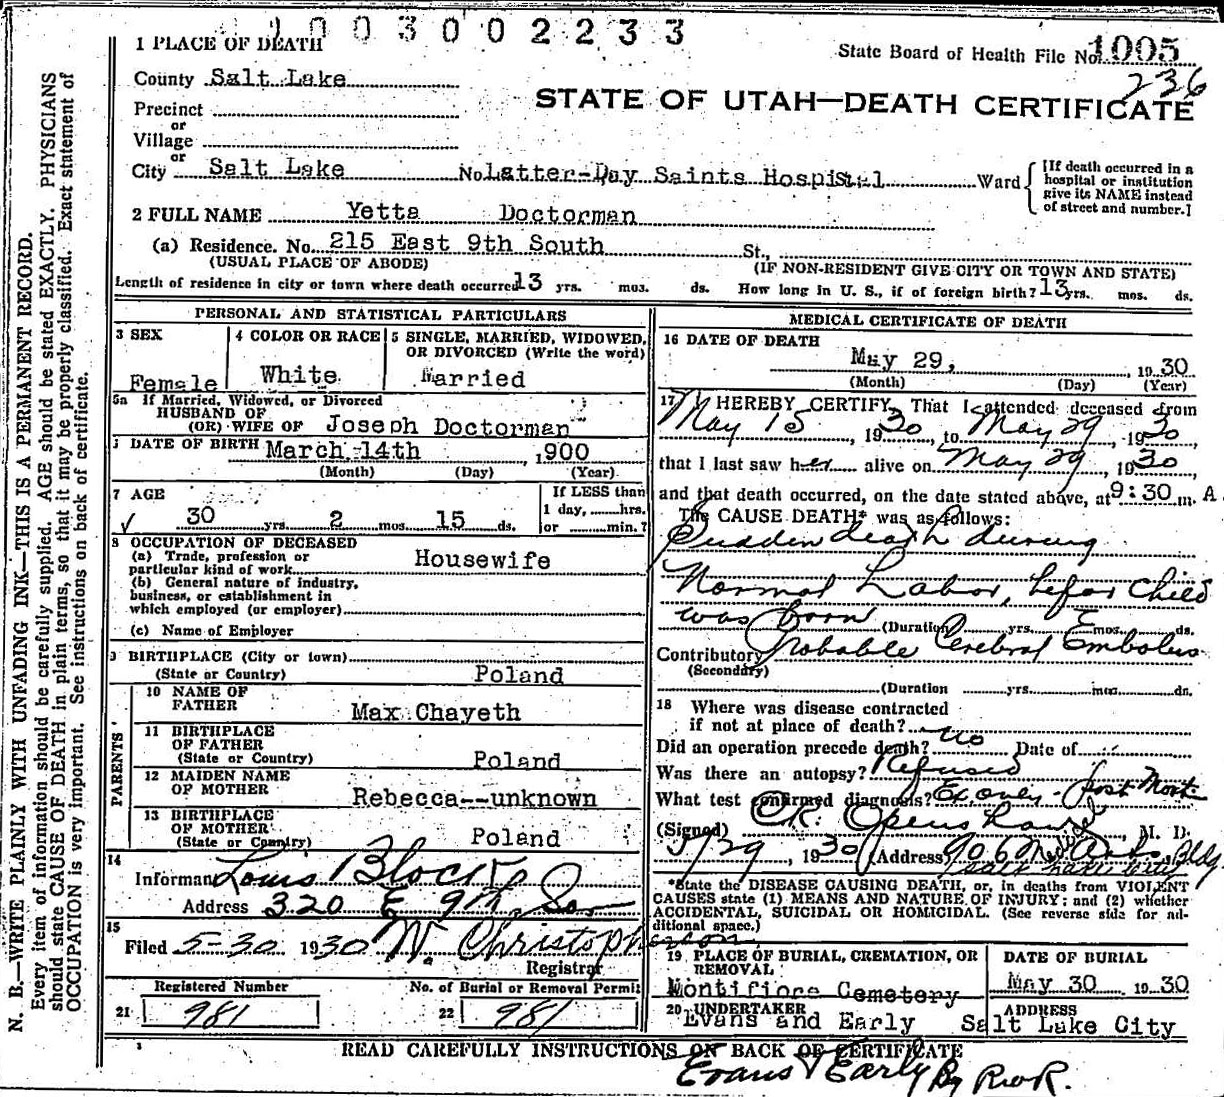 1 0 0 3 0 0 2 2 3 3
1 PLACE OF DEATH
State Board of Health File No. 1005
236
County Salt Lake
STATE OF UTAH—DEATH CERTIFICATE
Precinct
or
Village
or
City Salt Lake No. Latter-Day Saints Hospital Ward
[If death occurred in a hospital or institution give its NAME instead of street and number.]
2 FULL NAME Yetta Doctorman
(a) Residence. No. 215 East 9th South St.,
(USUAL PLACE OF ABODE) (IF NON-RESIDENT GIVE CITY OR TOWN AND STATE)
Length of residence in city or town where death occurred 13 yrs. mos. ds. How long in U. S., if of foreign birth? 13 yrs. mos. ds.
PERSONAL AND STATISTICAL PARTICULARS
3 SEX
Female
4 COLOR OR RACE
White
5 SINGLE, MARRIED, WIDOWED, OR DIVORCED (Write the word)
Married
5a If Married, Widowed, or Divorced
HUSBAND OF
(OR) WIFE OF Joseph Doctorman
DATE OF BIRTH March 14th, 1900
(Month) (Day) (Year)
7 AGE
√ 30 yrs 2 mos. 15 ds.
If LESS than
1 day, hrs.
or min.?
8 OCCUPATION OF DECEASED
(a) Trade, profession or
particular kind of work Housewife
(b) General nature of industry,
business, or establishment in
which employed (or employer)
(c) Name of Employer
9 BIRTHPLACE (City or town)
(State or Country) Poland
PARENTS
10 NAME OF
FATHER Max Chayeth
11 BIRTHPLACE
OF FATHER
(State or Country) Poland
12 MAIDEN NAME
OF MOTHER Rebecca--unknown
13 BIRTHPLACE
OF MOTHER
(State or Country) Poland
14
Informant Louis Block
Address 320 E 9th So
15
Filed 5-30 1930 W. Christopherson
Registrar
Registered Number
21 981
No. of Burial or Removal Permit
22 981
MEDICAL CERTIFICATE OF DEATH
16 DATE OF DEATH
May 29, 1930
(Month) (Day) (Year)
17 I HEREBY CERTIFY, That I attended deceased from
May 15, 1930, to May 29, 1930,
that I last saw her alive on May 29, 1930
and that death occurred, on the date stated above, at 9:30 m. A
The CAUSE DEATH* was as follows:
Sudden death during
Normal Labor, befor child
was born (Duration yrs. mos. ds.
Contributory Probable Cerebral Embolus
(Secondary)
(Duration yrs. mos. ds.
18 Where was disease contracted
if not at place of death?
Did an operation precede death? no Date of
Was there an autopsy? Refused
What test confirmed diagnosis? post Mort
(Signed) M. D.
5/29, 1930 (Address) 906 Medical Arts Bldg.
Salt Lake City
*State the DISEASE CAUSING DEATH, or, in deaths from VIOLENT
CAUSES state (1) MEANS AND NATURE OF INJURY; and (2) whether
ACCIDENTAL, SUICIDAL OR HOMICIDAL. (See reverse side for additional space.)
19 PLACE OF BURIAL, CREMATION, OR
REMOVAL
Montifiore Cemetery
DATE OF BURIAL
May 30 1930
20 UNDERTAKER
Evans and Early
ADDRESS
Salt Lake City
READ CAREFULLY INSTRUCTIONS ON BACK OF CERTIFICATE
Evans & Early By
N. B.—WRITE PLAINLY WITH UNFADING INK—THIS IS A PERMANENT RECORD.
Every item of information should be carefully supplied. AGE should be stated EXACTLY. PHYSICIANS
should state CAUSE OF DEATH in plain terms, so that it may be properly classified. Exact statement of
OCCUPATION is very important. See instructions on back of certificate.